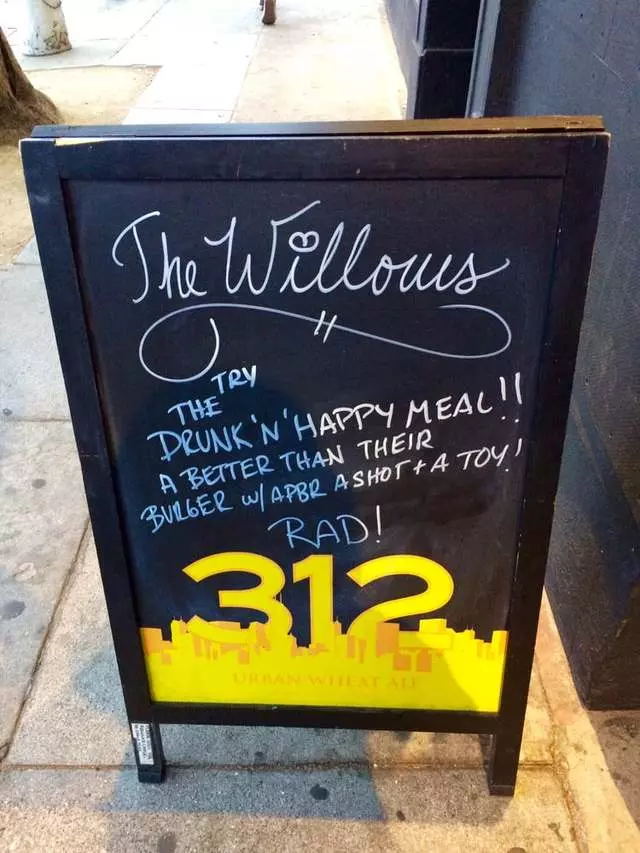 The Willows
TRY
THE
DRUNK 'N' HAPPY MEAL!!
A BETTER THAN THEIR
BURGER W/ A PBR A SHOT + A TOY!
RAD!
312
URBAN WHEAT ALE